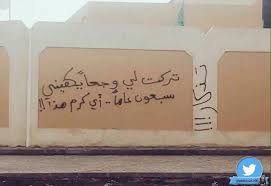 تركت لي وجعاً يكفيني
سبعون عاماً.. أي كرم هذا !!
تذكار !!!